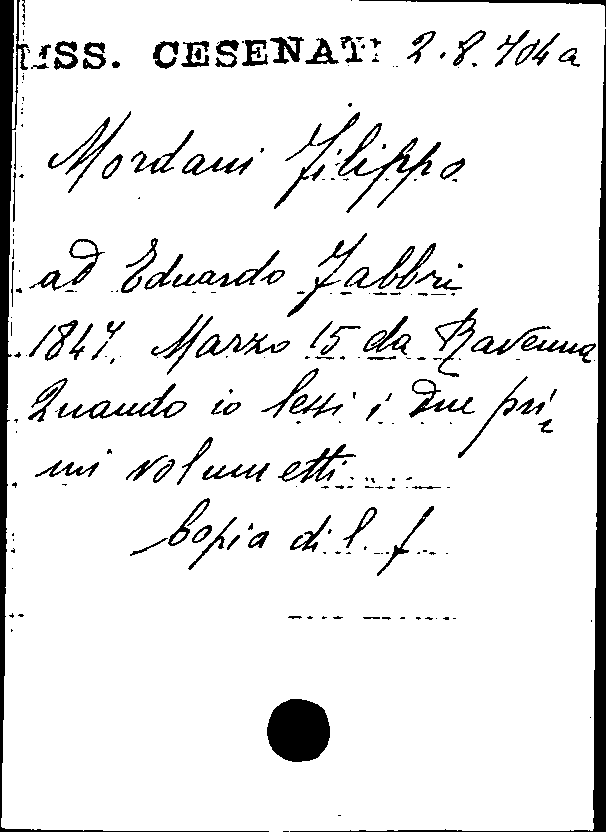 MSS. CESENATI 2.8.704 a
Mordani Filippo
ad Eduardo Fabbri
1847. Marzo 15 da Ravenna
Quando io lessi i due pri
mi volumetti
Copia di l. f